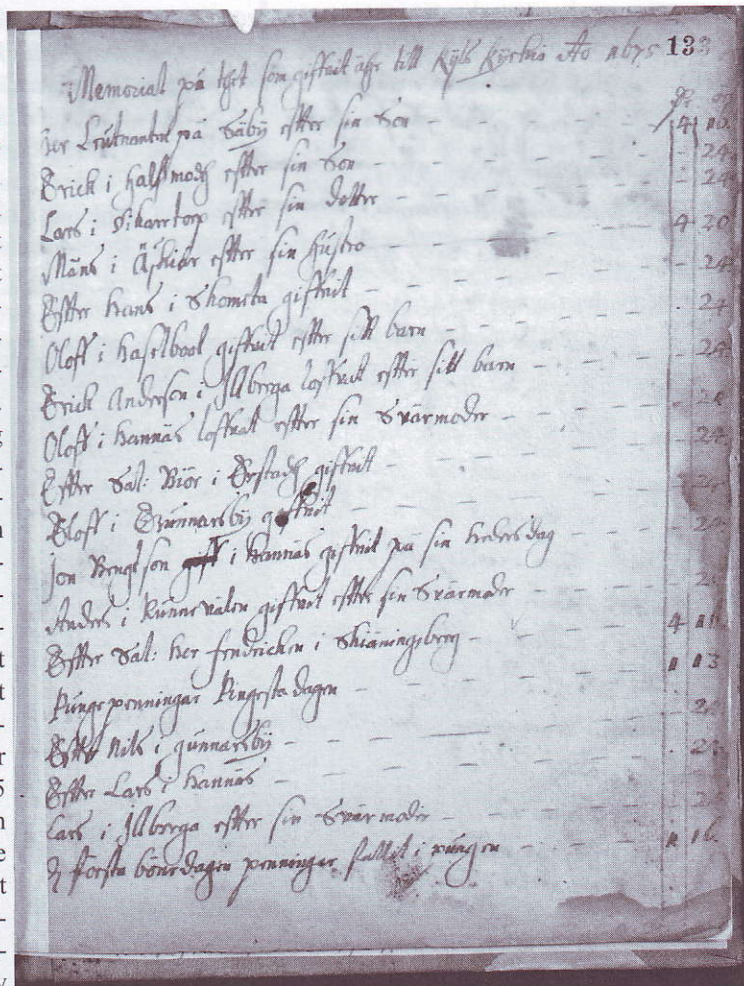 133
Memorial på thet som giffvit åhr till Kyls Kyrkia Ao 1675
Her Leutnanten på Säby efter sin Son 4 10.
Erick i Halfmodh efter sin Son 24.
Lars i Vikartorp efter sin dotter 24
Måns i efter sin hustro 4 20
Effter Hans i Skometa giffvit 24
Oloff i Haselbool giffvit efter sitt barn 24
Erick Anderson i Illberga loffvat efter sitt barn 24
Oloff i Hannäs loffvat efter sin Svärmoder 24
Effter Sal: i giffvit 24.
Oloff i Gunnarsby giffvit
Jon Bengtson i Hannäs giffvit på sin hedersdag
Anders i Runnevålen giffvit efter sin Svärmoder
Effter Sal: Her fendricken i Skiäningeberg 4
Pungepenningar Pingesta dagen 13
Effter Nils i gunnarsby
Effter Lars i Hannäs
Lars i Illberga efter sin Svärmoder
första bönedagen penningar fallit i pungen 16.